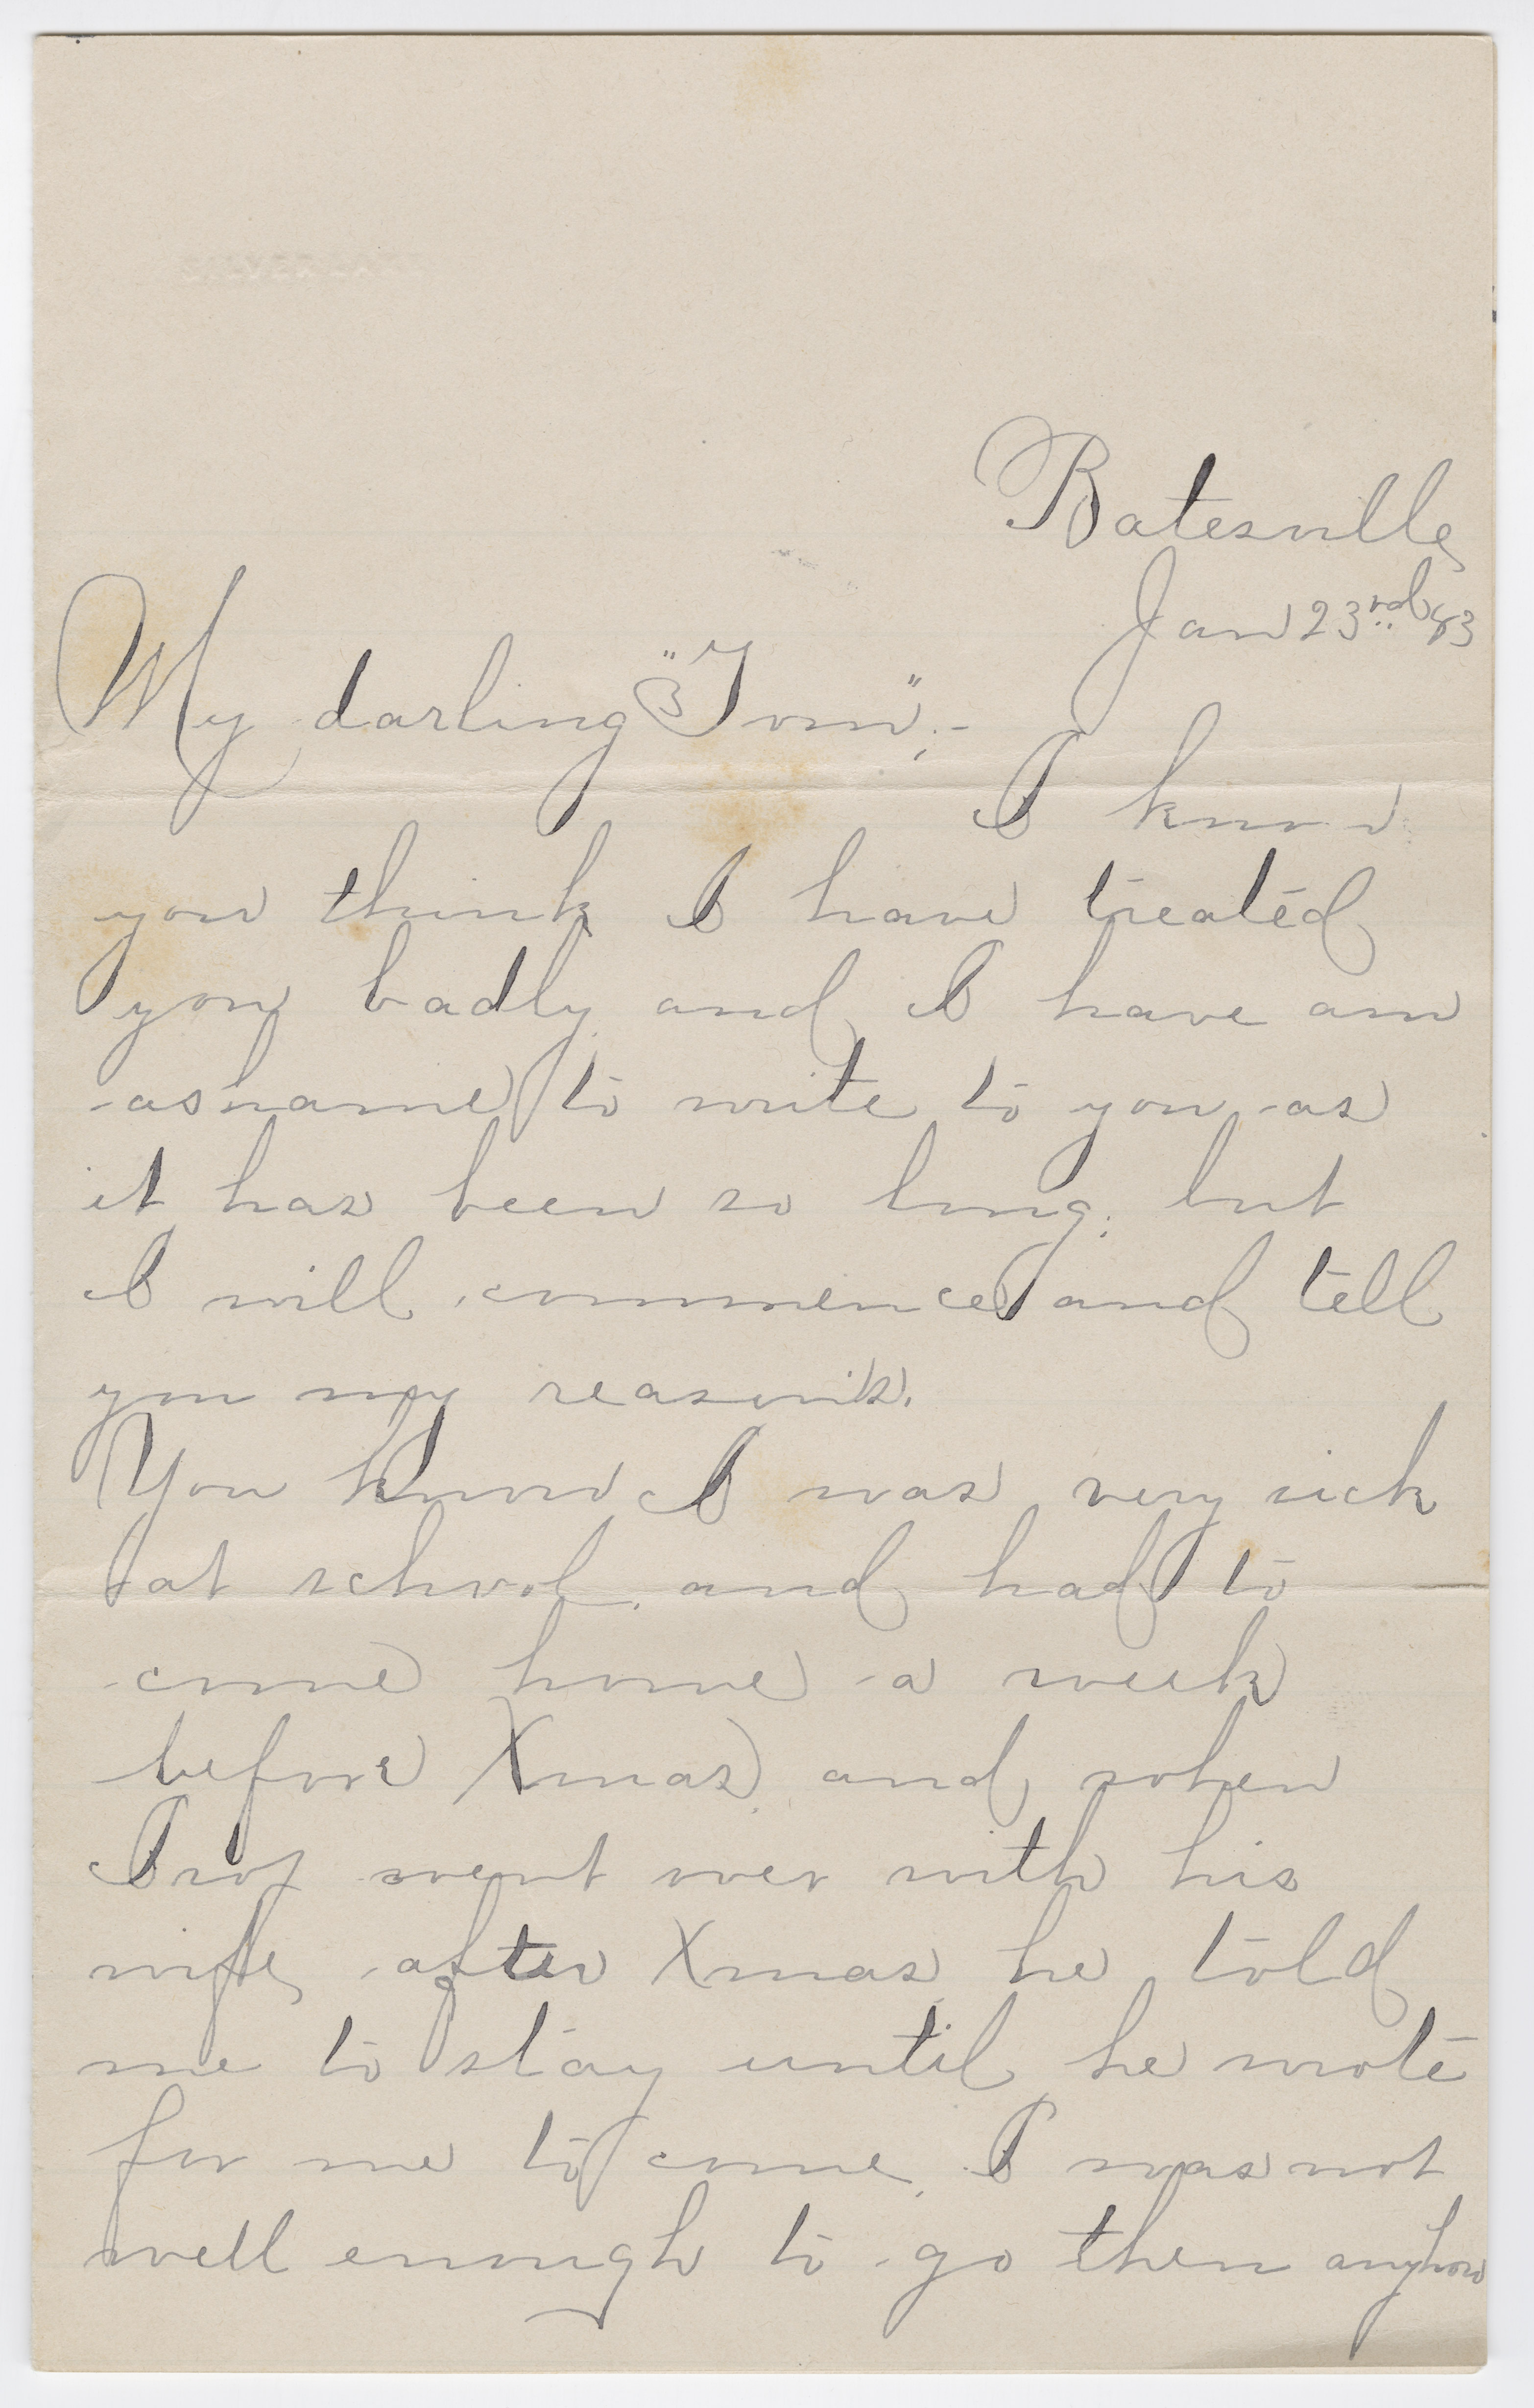 Batesville
Jan 23rd 83
My darling "Tom":-
I know
you think I have treated
you badly and I have am
ashame to write to you as
it has been so long; but
I will commence and tell
you my reasons.
You know I was very sick
at school, and had to
come home a week
before Xmas, and when
Prof went over with his
wife, after Xmas, he told
me to stay until he wrote
for me to come, I was not
well enough to go then anyhow